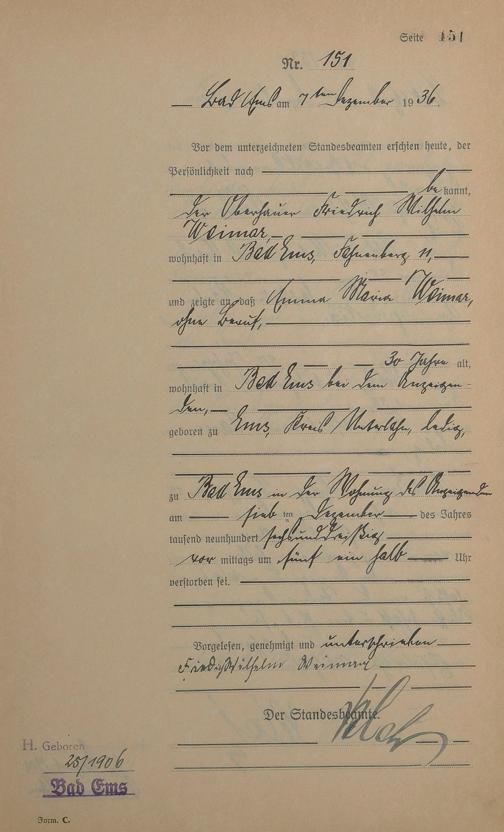 Seite 151
Nr. 151
Bad Ems am 7ten Dezember 1936.
Vor dem unterzeichneten Standesbeamten erschien heute, der
Persönlichkeit nach
bekannt,
der Oberhauer Friedrich Wilhelm
Weimar,
wohnhaft in Bad Ems, 11,
und zeigte an, daß Emma Maria Weimar,
ohne Beruf,
30 Jahre alt,
wohnhaft in Bad Ems bei dem Anzeigen-
den,
geboren zu Ems, Kreis Unterlahn, ledig,
zu Bad Ems in der Wohnung des Anzeigenden
am sieb ten Dezember des Jahres
tausend neunhundert sechsunddreißig
vor mittags um fünf ein halb Uhr
verstorben sei.
Vorgelesen, genehmigt und unterschrieben
Friedr Wilhelm Weimar
Der Standesbeamte.
H. Geboren
25/1906
Bad Ems
Form. C.